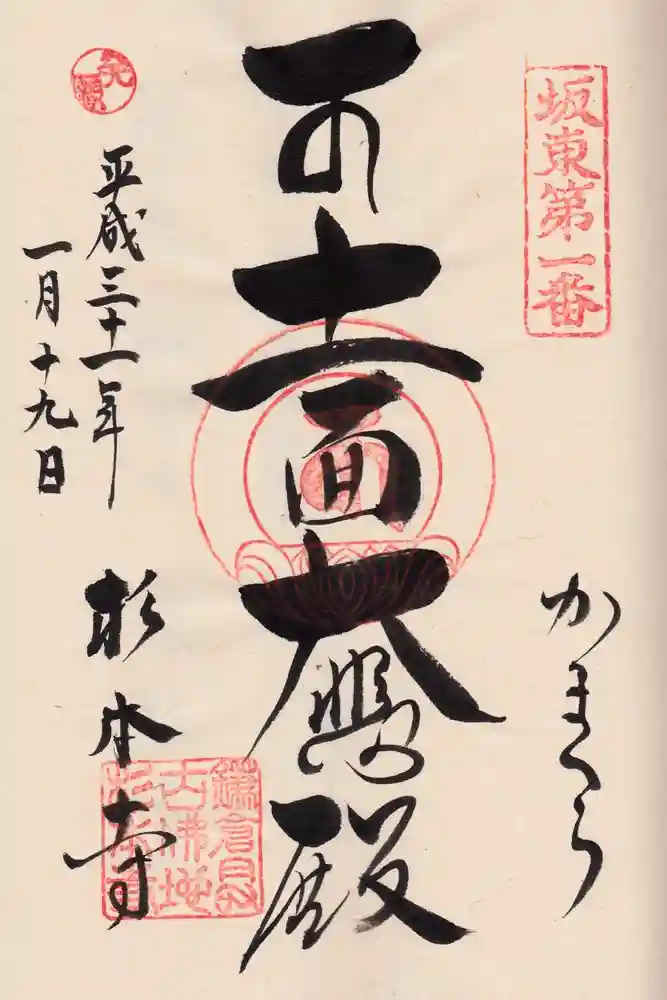 坂東第一番
かまくら
十一面大悲殿
発願
平成三十一年
一月十九日
杉本寺
鎌倉最
古佛地
杉本寺